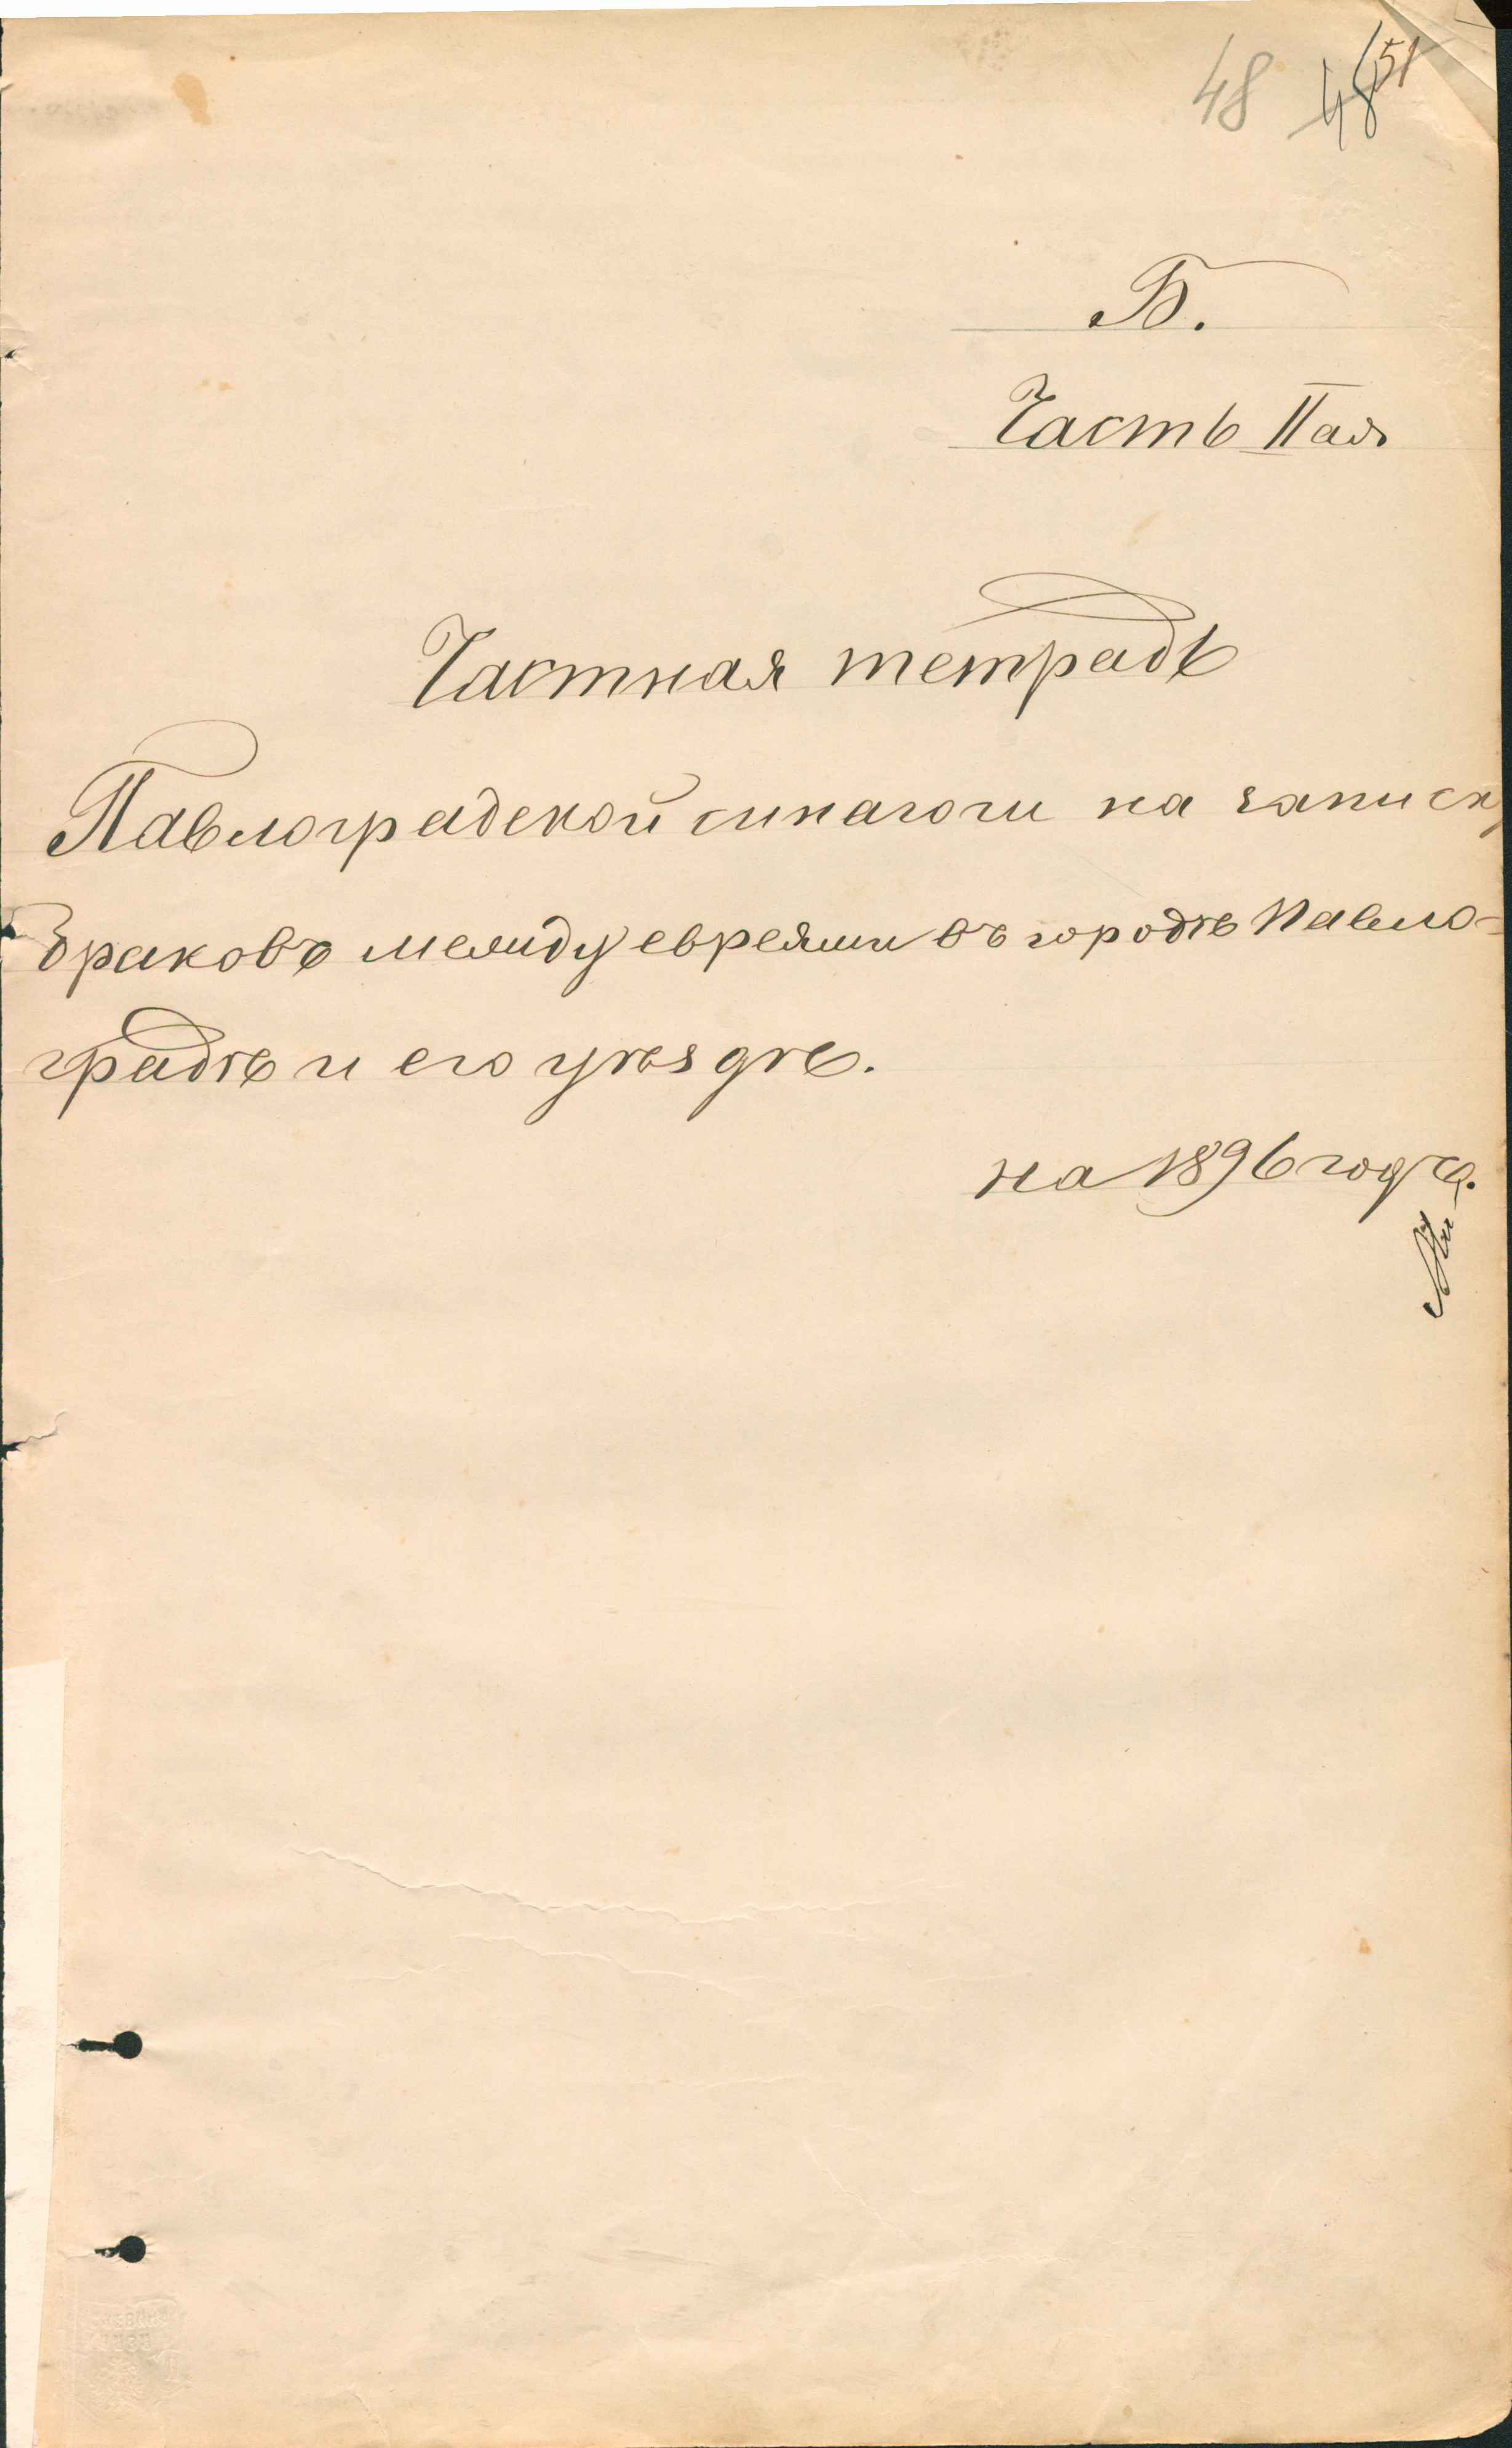 48 48 51
Б.
Часть IIая
Частная тетрадь
Павлоградской синагоги на записку
браковъ между евреями въ городѣ Павло-
градѣ и его уѣздѣ.
на 1896 годъ.